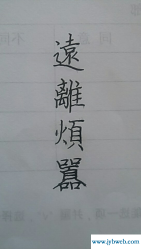 遠離煩囂
www.jyhweb.com